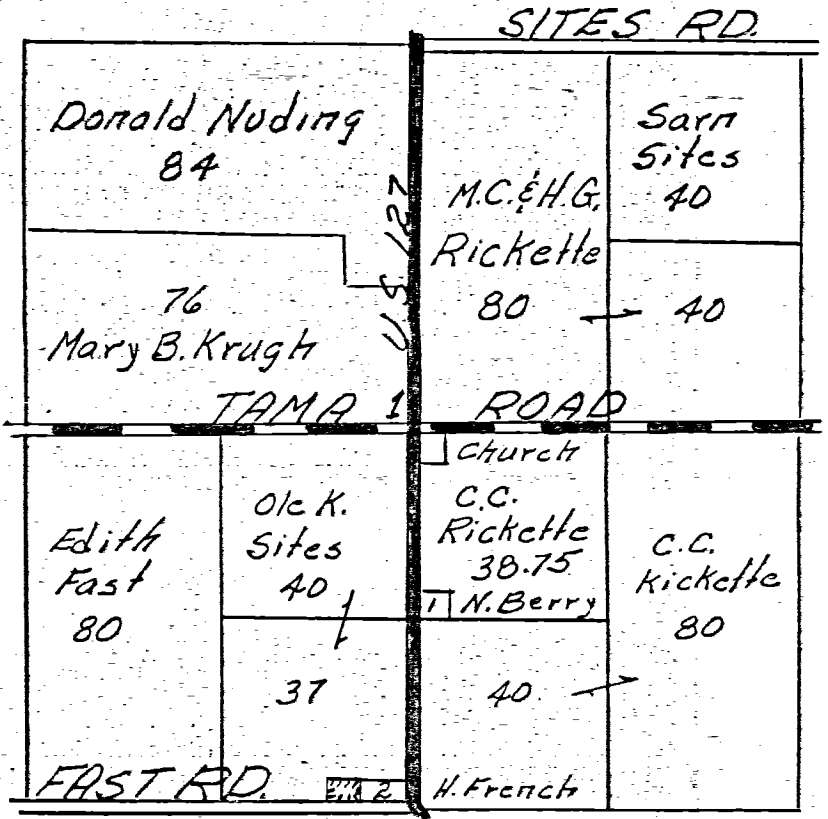 SITES RD.
Donald Nuding
84
U.S. 127
M.C. & H.G.
Rickette
80
Sam
Sites
40
40
76
Mary B. Krugh
TAMA 1 ROAD
Edith
Fast
80
Ole K.
Sites
40
37
Church
C.C.
Rickette
38.75
1 N. Berry
C.C.
Rickette
80
40
FAST RD.
2
H. French